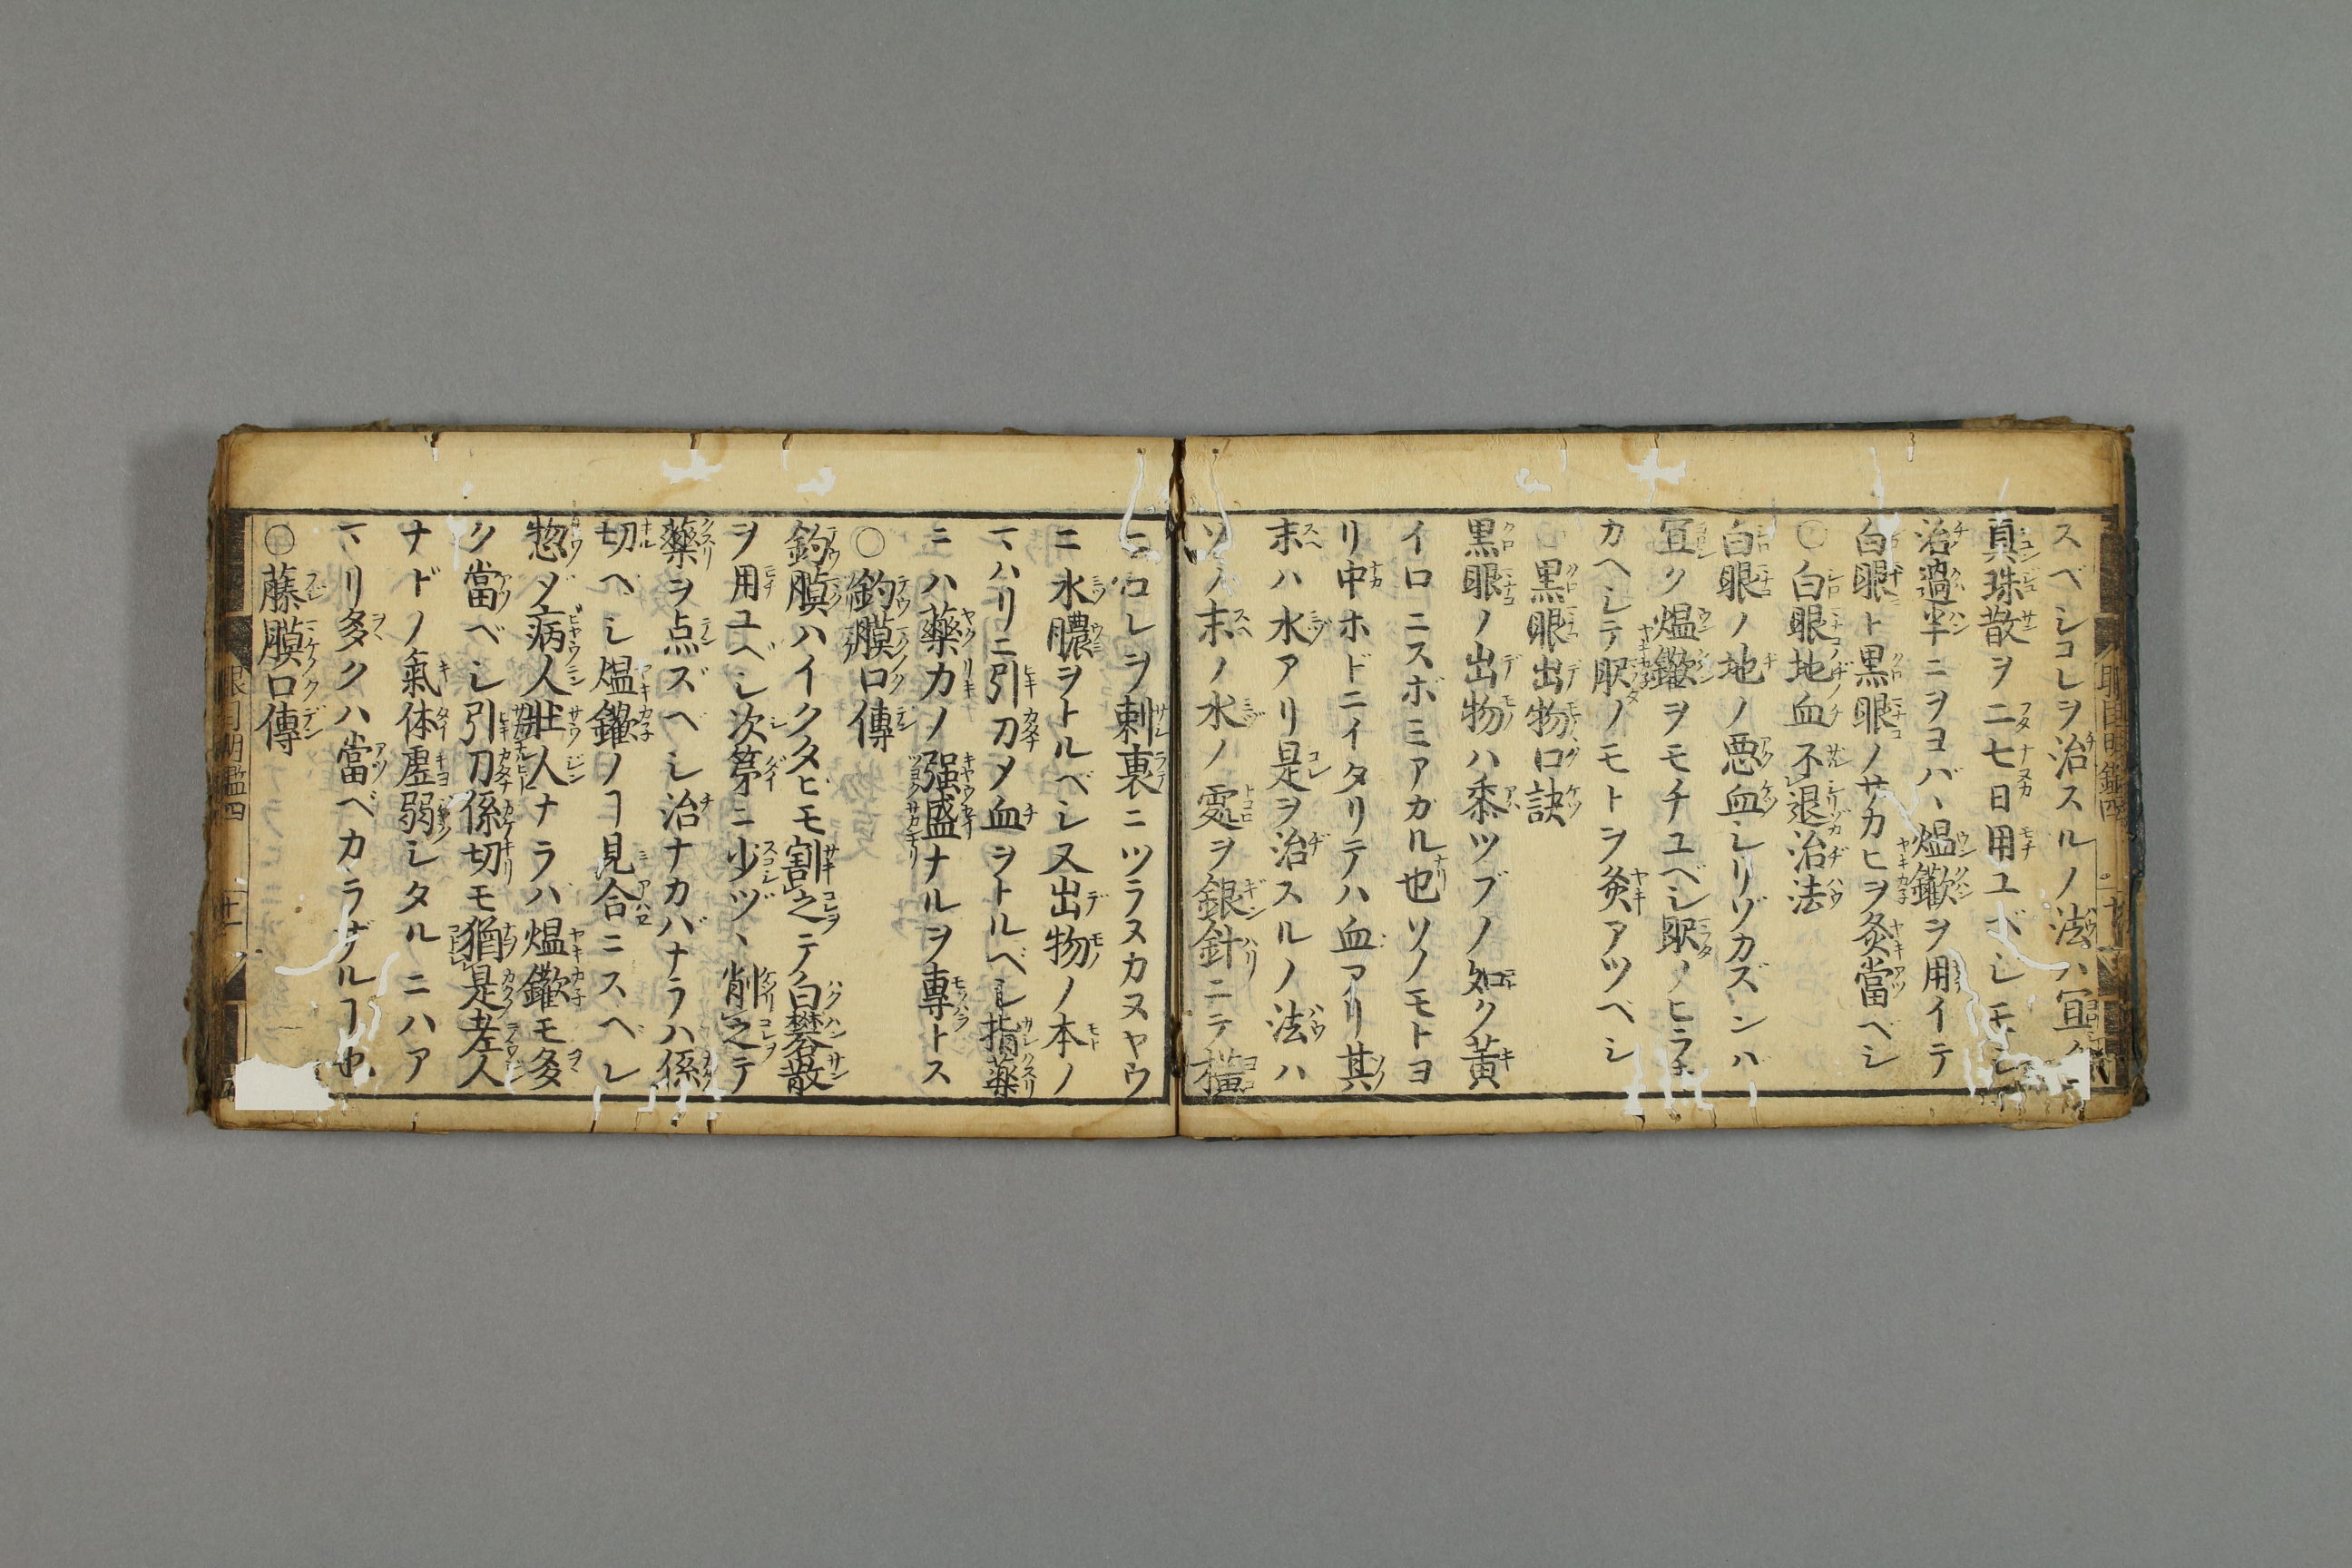 スベシコレヲ治スルノ法ハ宜ク
真珠散ヲ二七日用ユベシモシ
治過半ニヲヨバヽ煴鑯ヲ用イテ
白眼ト黒眼ノサカヒヲ灸當ベシ
〇白眼地血不退治法
白眼ノ地ノ悪血シリゾカズンバ
宜ク煴鑯ヲモチユベシ眼ノヒラヲ
カヘシテ眼ノモトヲ灸アツベシ
黒眼出物口訣
黒眼ノ出物ハ黍ツブノ如ク黄
イロニスボミアカル也ソノモトヨ
リ中ホドニイタリテハ血アリ其
末ハ水アリ是ヲ治スルノ法ハ
ソノ末ノ水ノ處ヲ銀針ニテ横
ニコレヲ刺裏ニツラヌカヌヤウ
ニ水膿ヲトルベシ又出物ノ本ノ
マハリニ引刀〆血ヲトルベシ指薬
ニハ薬力ノ強盛ナルヲ專トス
〇釣膜口傳
釣膜ハイクタビモ割之テ白礬散
ヲ用ユベシ次第ニ少ヅヽ削之テ
藥ヲ点ズベシ治ナカバナラハ係
切ベシ煴鑯ノヿ見合ニスベシ
惣〆病人壯人ナラバ煴鑯モ多
ク當ベシ引刀係切モ猶是老人
ナドノ氣体虚弱シタルニハア
マリ多クハ當ベカラザルヿ也
〇藤膜口傳
眼目明鑑四